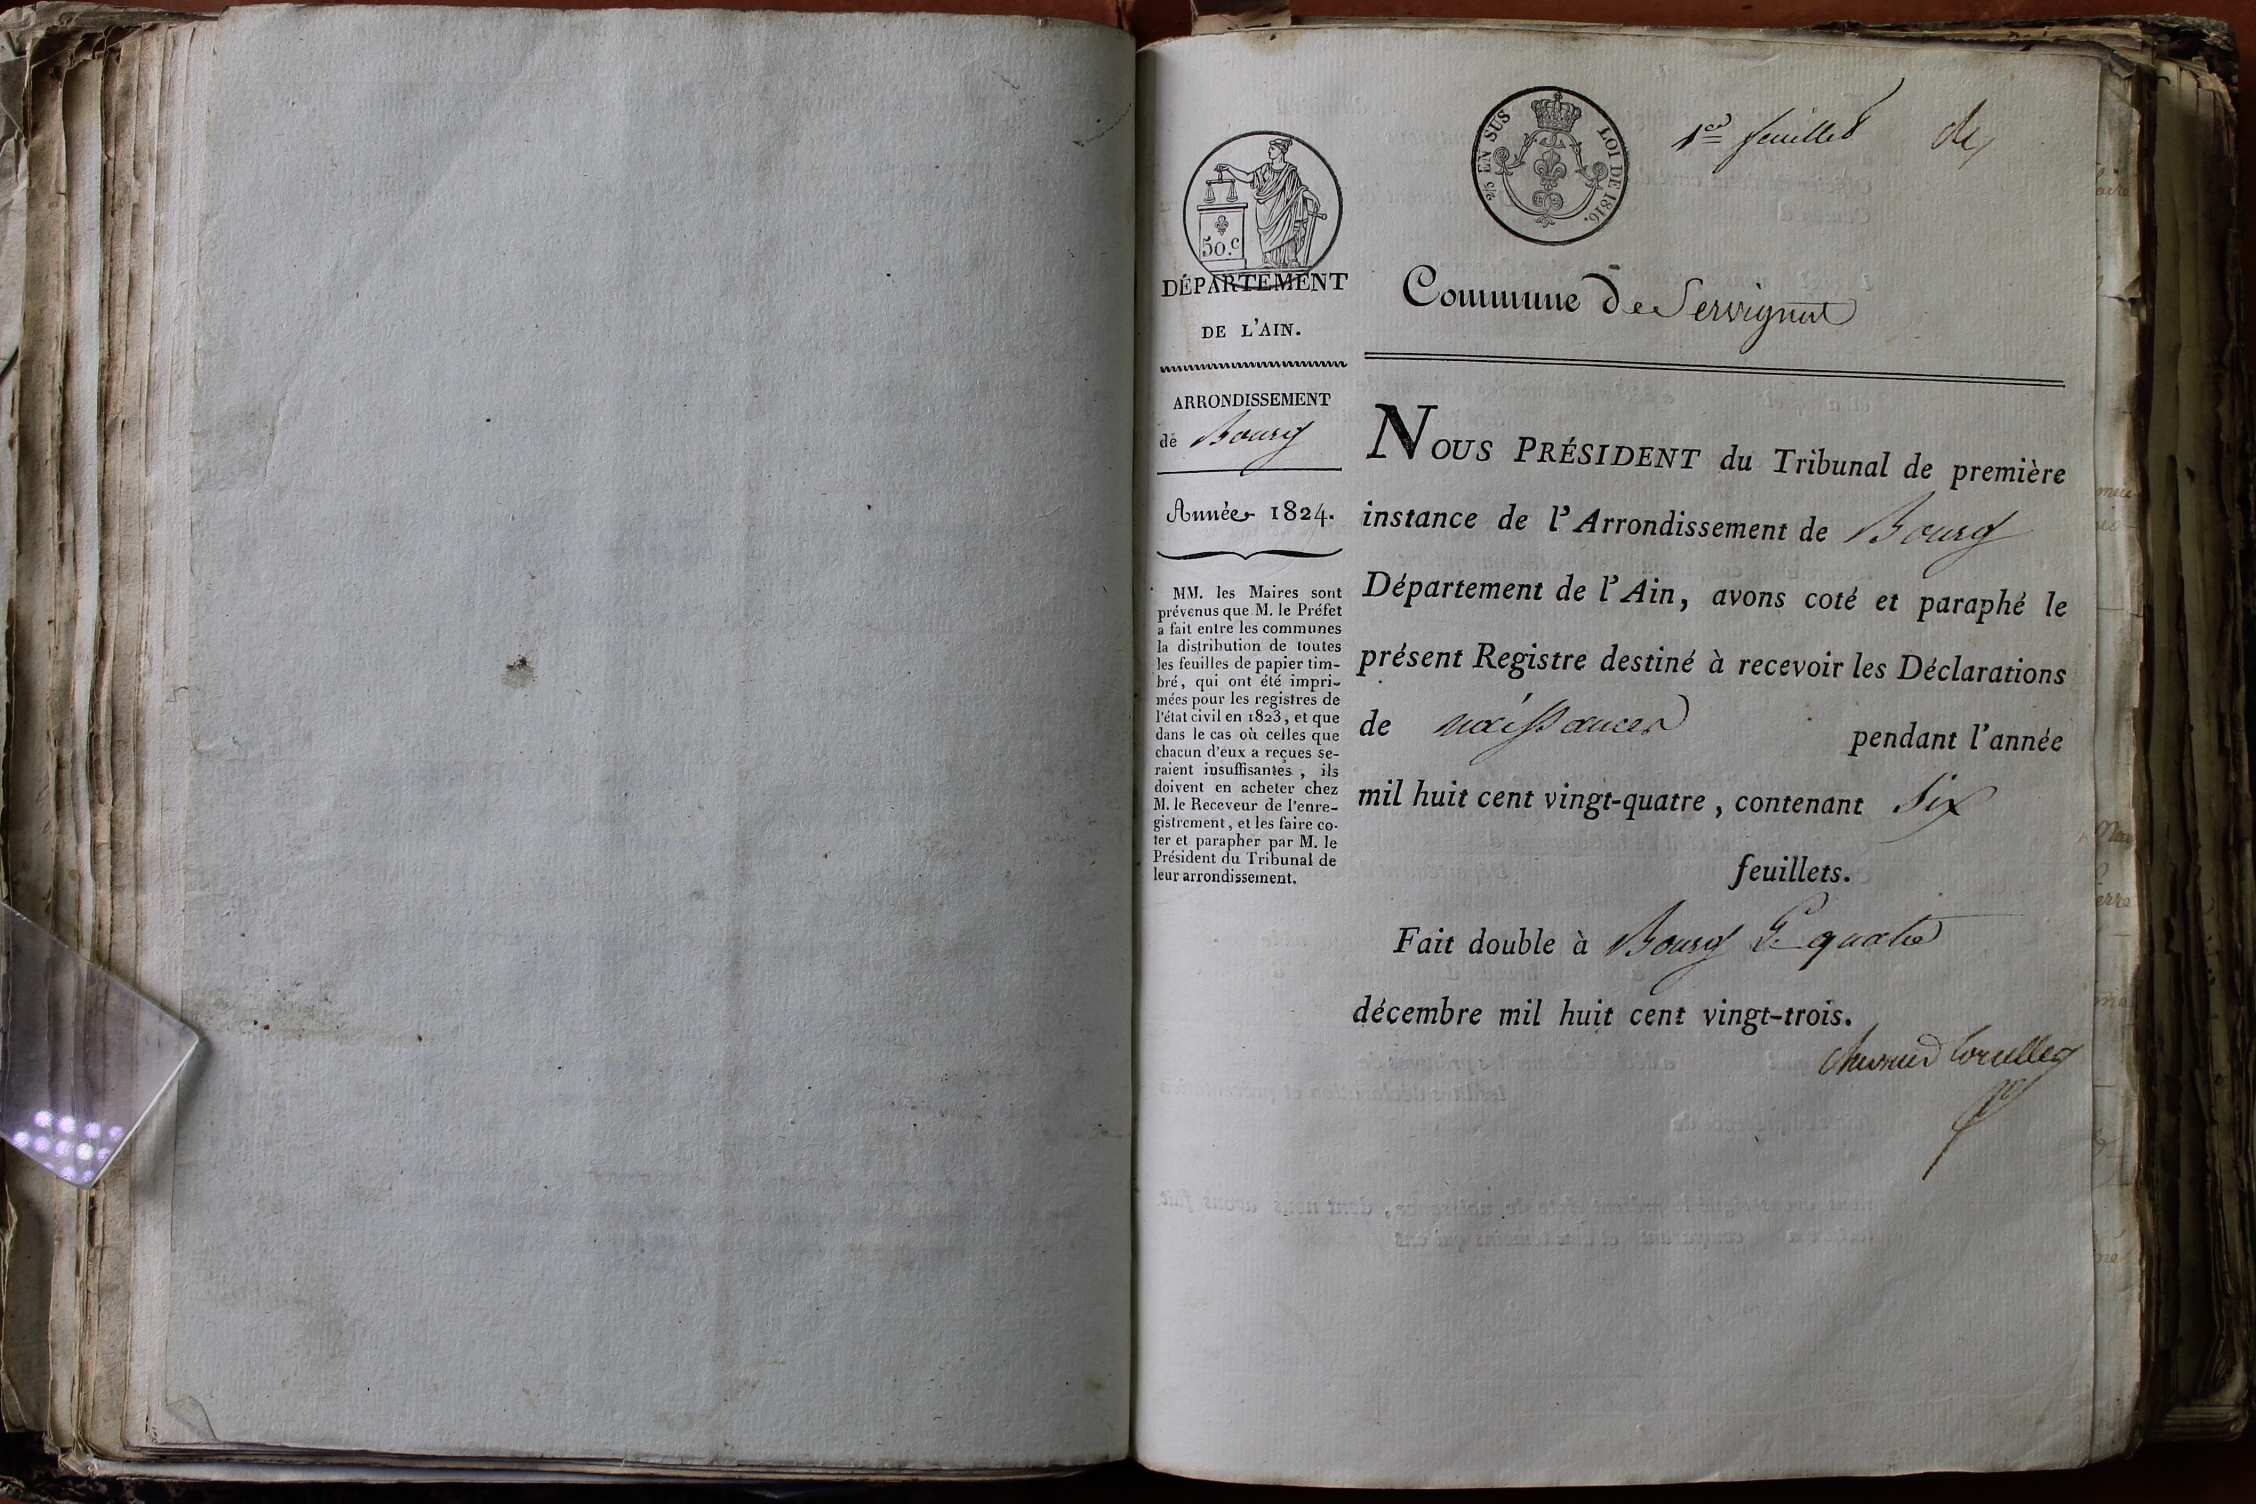 50.c
DÉPARTEMENT
DE L'AIN.
ARRONDISSEMENT
de Bourg
Année 1824.
MM. les Maires sont
prévenus que M. le Préfet
a fait entre les communes
la distribution de toutes
les feuilles de papier tim-
bré, qui ont été impri-
mées pour les registres de
l'état civil en 1823, et que
dans le cas où celles que
chacun d'eux a reçues se-
raient insuffisantes, ils
doivent en acheter chez
M. le Receveur de l'enre-
gistrement, et les faire co-
ter et parapher par M. le
Président du Tribunal de
leur arrondissement.
EN SUS LOI DE 1816.
1er feuillet
Commune de Servignat
NOUS PRÉSIDENT du Tribunal de première
instance de l'Arrondissement de Bourg
Département de l'Ain, avons coté et paraphé le
présent Registre destiné à recevoir les Déclarations
de naissances pendant l'année
mil huit cent vingt-quatre, contenant six
feuillets.
Fait double à Bourg le quatre
décembre mil huit cent vingt-trois.